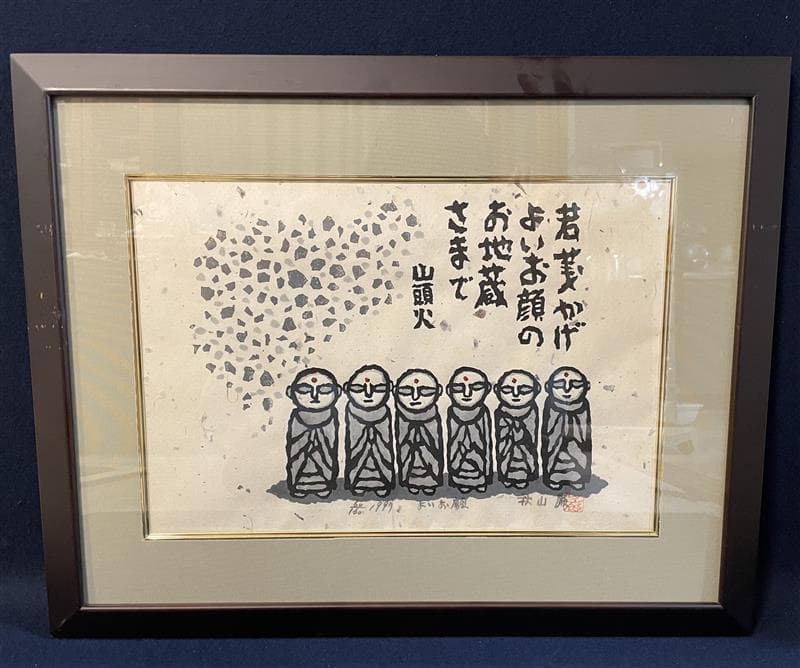 若葉かげ
よいお顔の
お地蔵
さまで
山頭火
1997
よいお顔
秋山巌